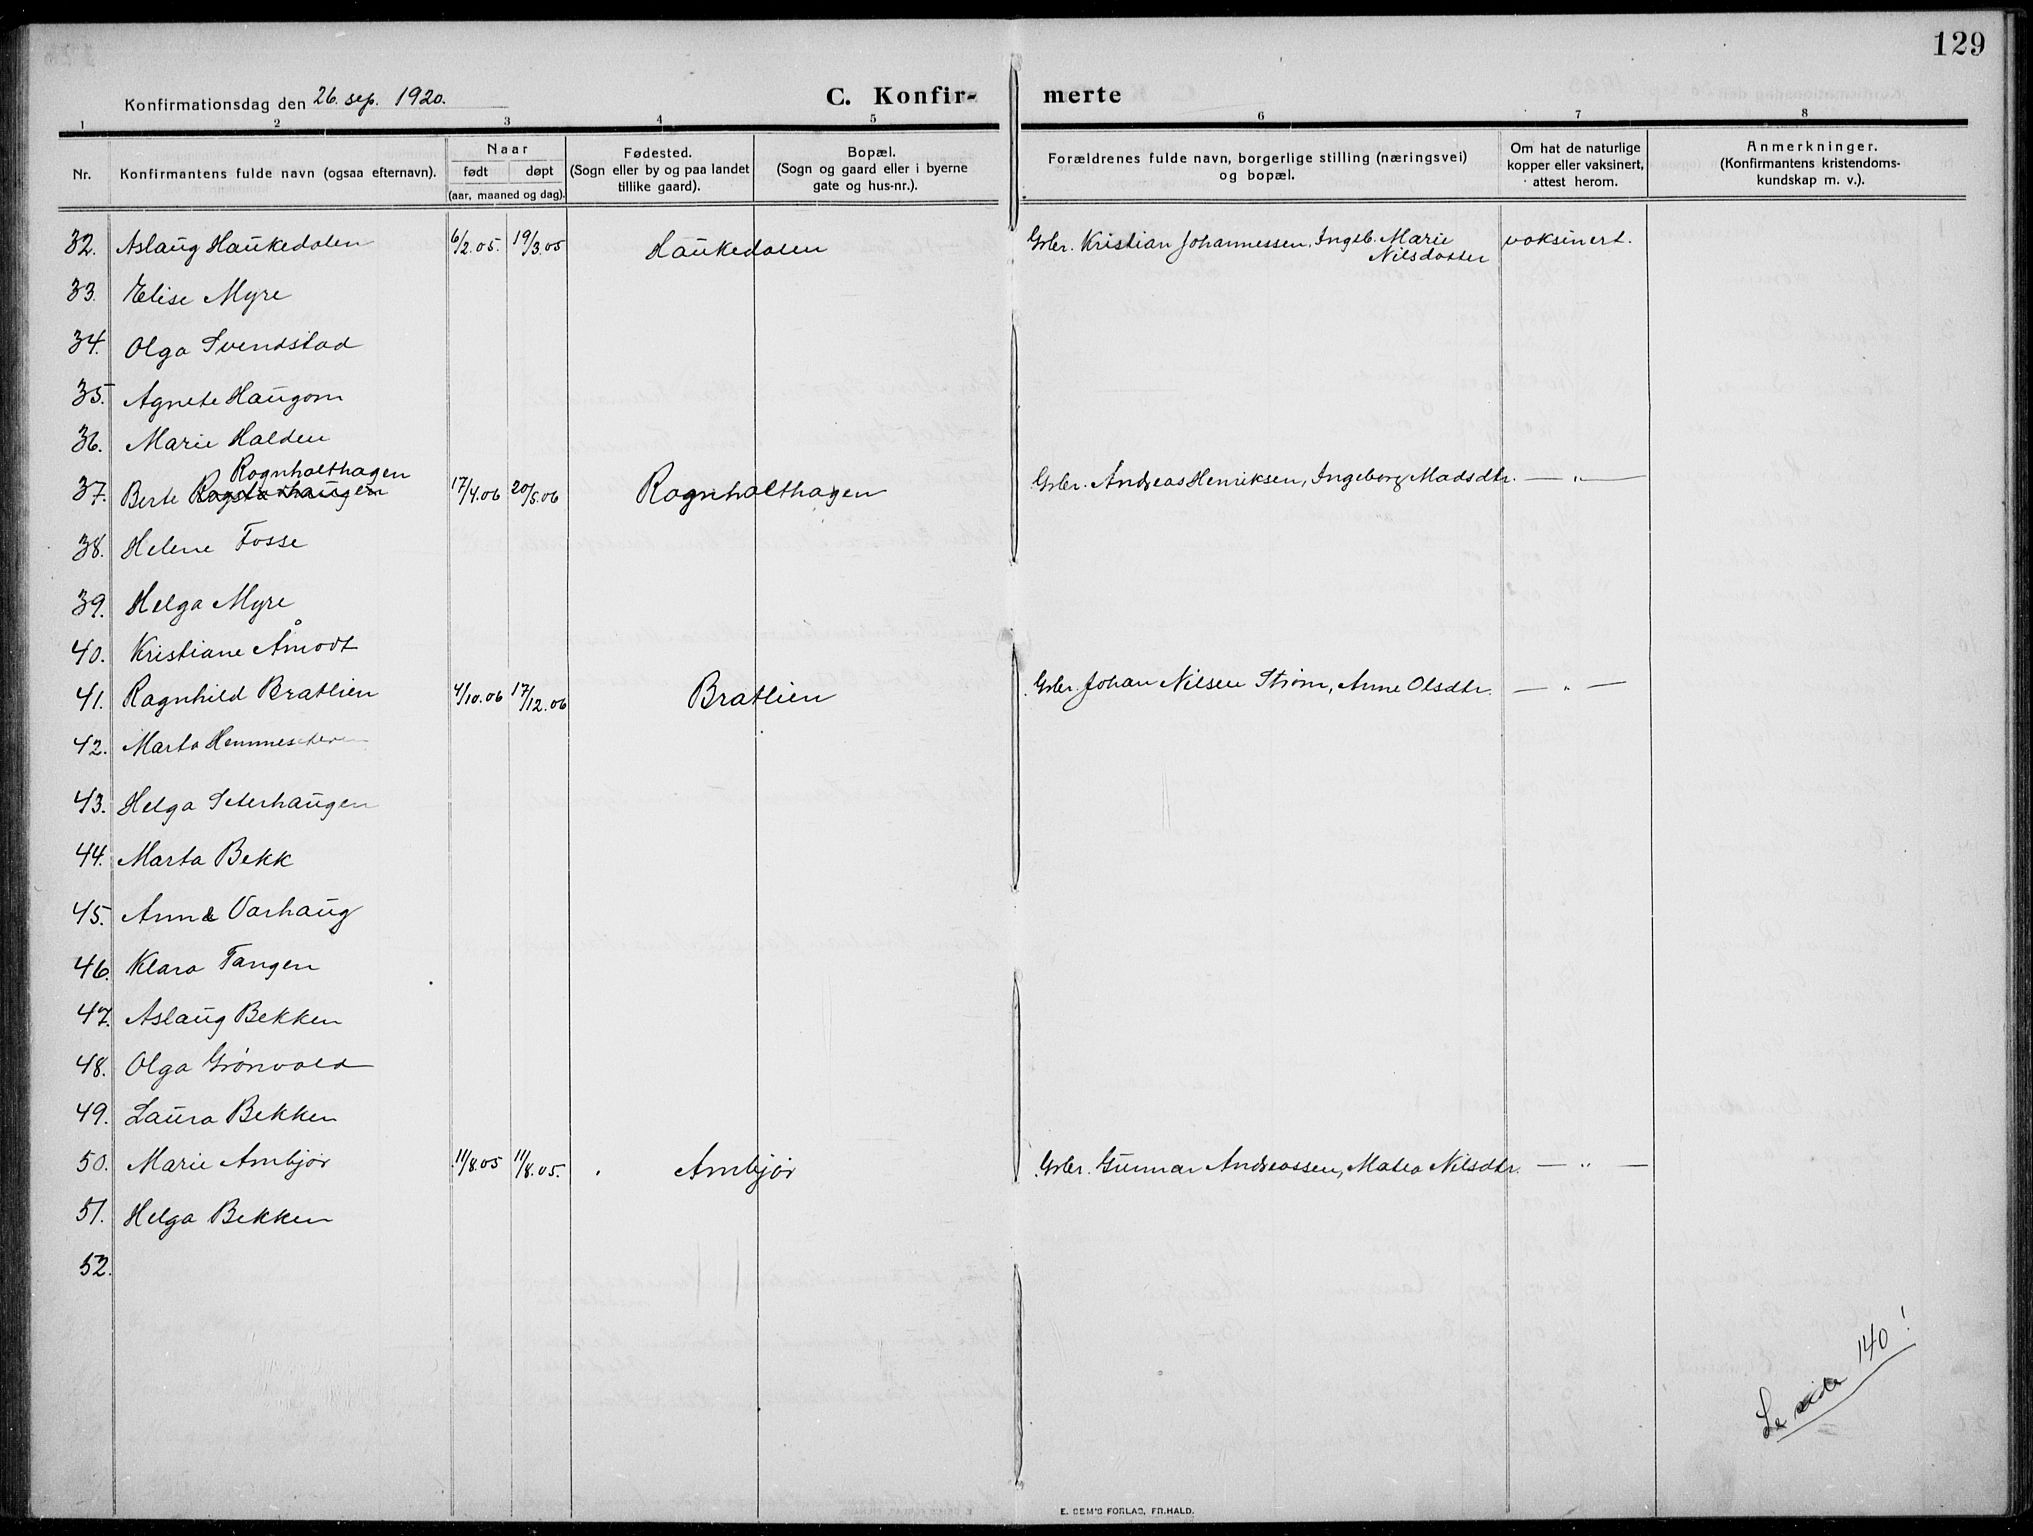 129
Konfirmationsdag den 26. sep. 1920.
C. Konfir- merte
1 2 3 4 5 6 7 8
Nr.
Konfirmantens fulde navn (ogsaa efternavn).
Naar
født døpt
(aar, maaned og dag).
Fødested.
(Sogn eller by og paa landet
tillike gaard).
Bopæl.
(Sogn og gaard eller i byerne
gate og hus-nr.).
Forældrenes fulde navn, borgerlige stilling (næringsvei)
og bopæl.
Om hat de naturlige
kopper eller vaksinert,
attest herom.
Anmerkninger.
(Konfirmantens kristendoms-
kundskap m. v.).
32. Aslaug Haukedalen 6/2.05. 19/3.05 Haukedalen Grbr. Kristian Johannessen, Ingeb. Marie vaksinert.
Nilsdatter
33. Elise Myre
34. Olga Svendstad
35. Agnete Haugom
36. Marie Halden
Rognholthagen
37. Berte Rogstadhaugen 17/4.06 20/5.06 Rognholthagen Grbr. Andreas Henriksen, Ingeborg Madsdtr. — " —
38. Helene Fosse
39. Helga Myre
40. Kristiane Åmodt
41. Ragnhild Bratlien 4/10.06 17/12.06 Bratlien Grbr. Johan Nilsen Strøm, Anne Olsdtr. — " —
42. Marta
43. Helga Seterhaugen
44. Marta Bekk
45. Anne Varhaug
46. Klara Tangen
47. Aslaug Bekken
48. Olga Grønvold
49. Laura Bekken
50. Marie Ambjør 11/8.05 11/8.05. Ambjør Grbr. Gunnar Andreassen, Matea Nilsdtr. — " —
51. Helga Bekken
52.
Se side 140!
E. SEM'S FORLAG, FR.HALD.